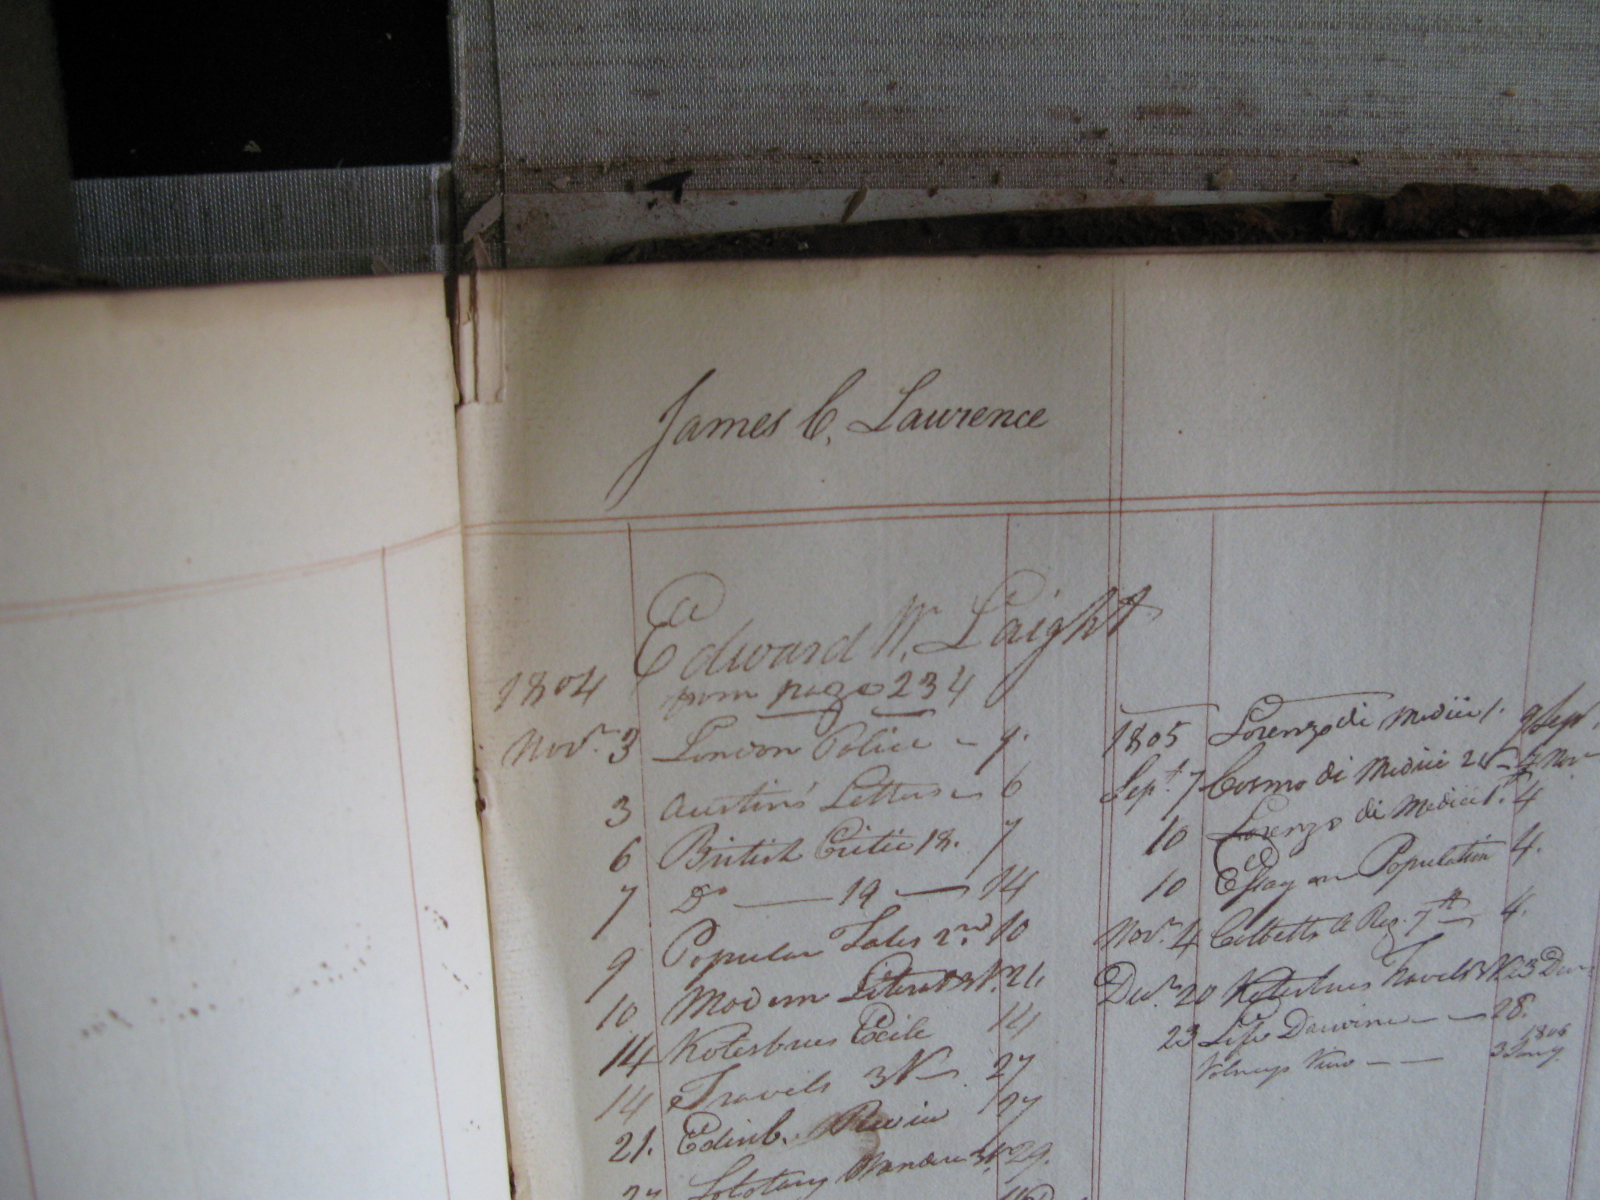 James C. Lawrence
Edward W. Laight
1804 from page 234
Novr. 3 London Police - 9.
3 Austin's Letters - 6
6 British Critic 18. 7
7 Do — 19 — 14
9 Popular Tales 2nd 10
10 Modern Literat 3 V. 21.
14 Kotzebues Exile 14
14 Travels 3 V - 27
21. Edinb. Review 27
Solitary Wanderer 3 V 29.
1805 Lorenzo di Medicii 1. 9 Sepr.
Sept. 7 Cosmo di Medicii 2 V - Nov
10 Lorenzo di Medicii 1st. 4
10 Essay on Population 4.
Novr. 4 Cobbetts A Reg. 7th 4.
Decr. 20 Kotzebues Travels 3 V. 23 Dec
23 Life Darwin — 28.
Volneys View — — 1806
3 Jany